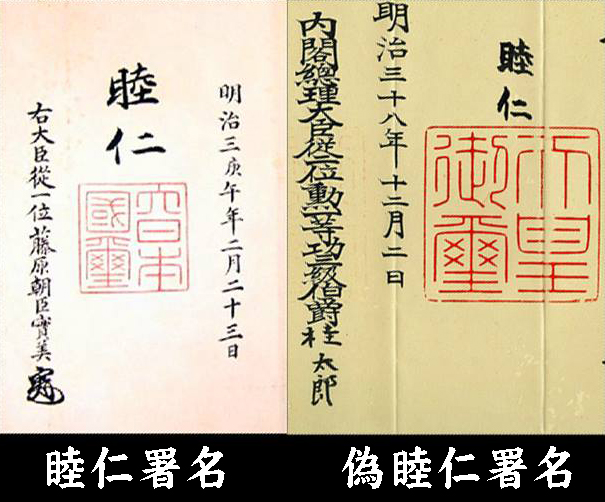 明治三庚午年二月二十三日
睦仁
大日本
國璽
右大臣從一位藤原朝臣實美
睦仁署名
睦仁
天皇
御璽
明治三十八年十二月二日
内閣總理大臣從二位勲一等功三級伯爵桂太郎
偽睦仁署名